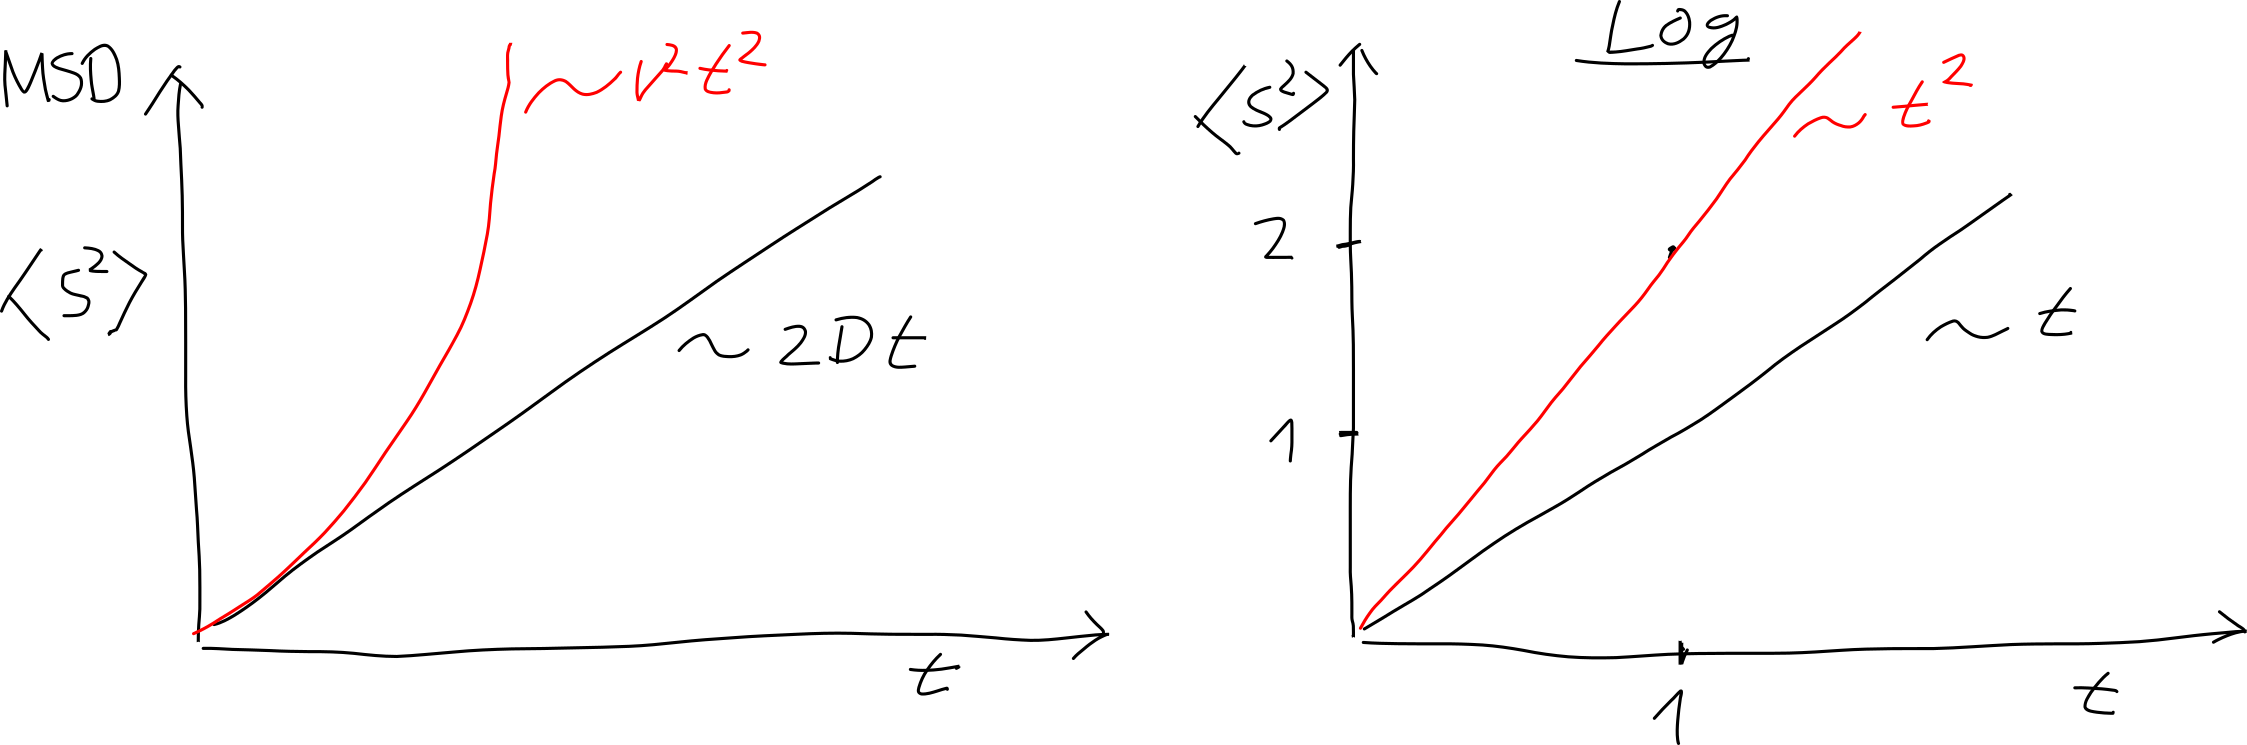 MSD
~ v² t²
<S²>
~ 2Dt
t
Log
<S²>
~ t²
2
~ t
1
1
t